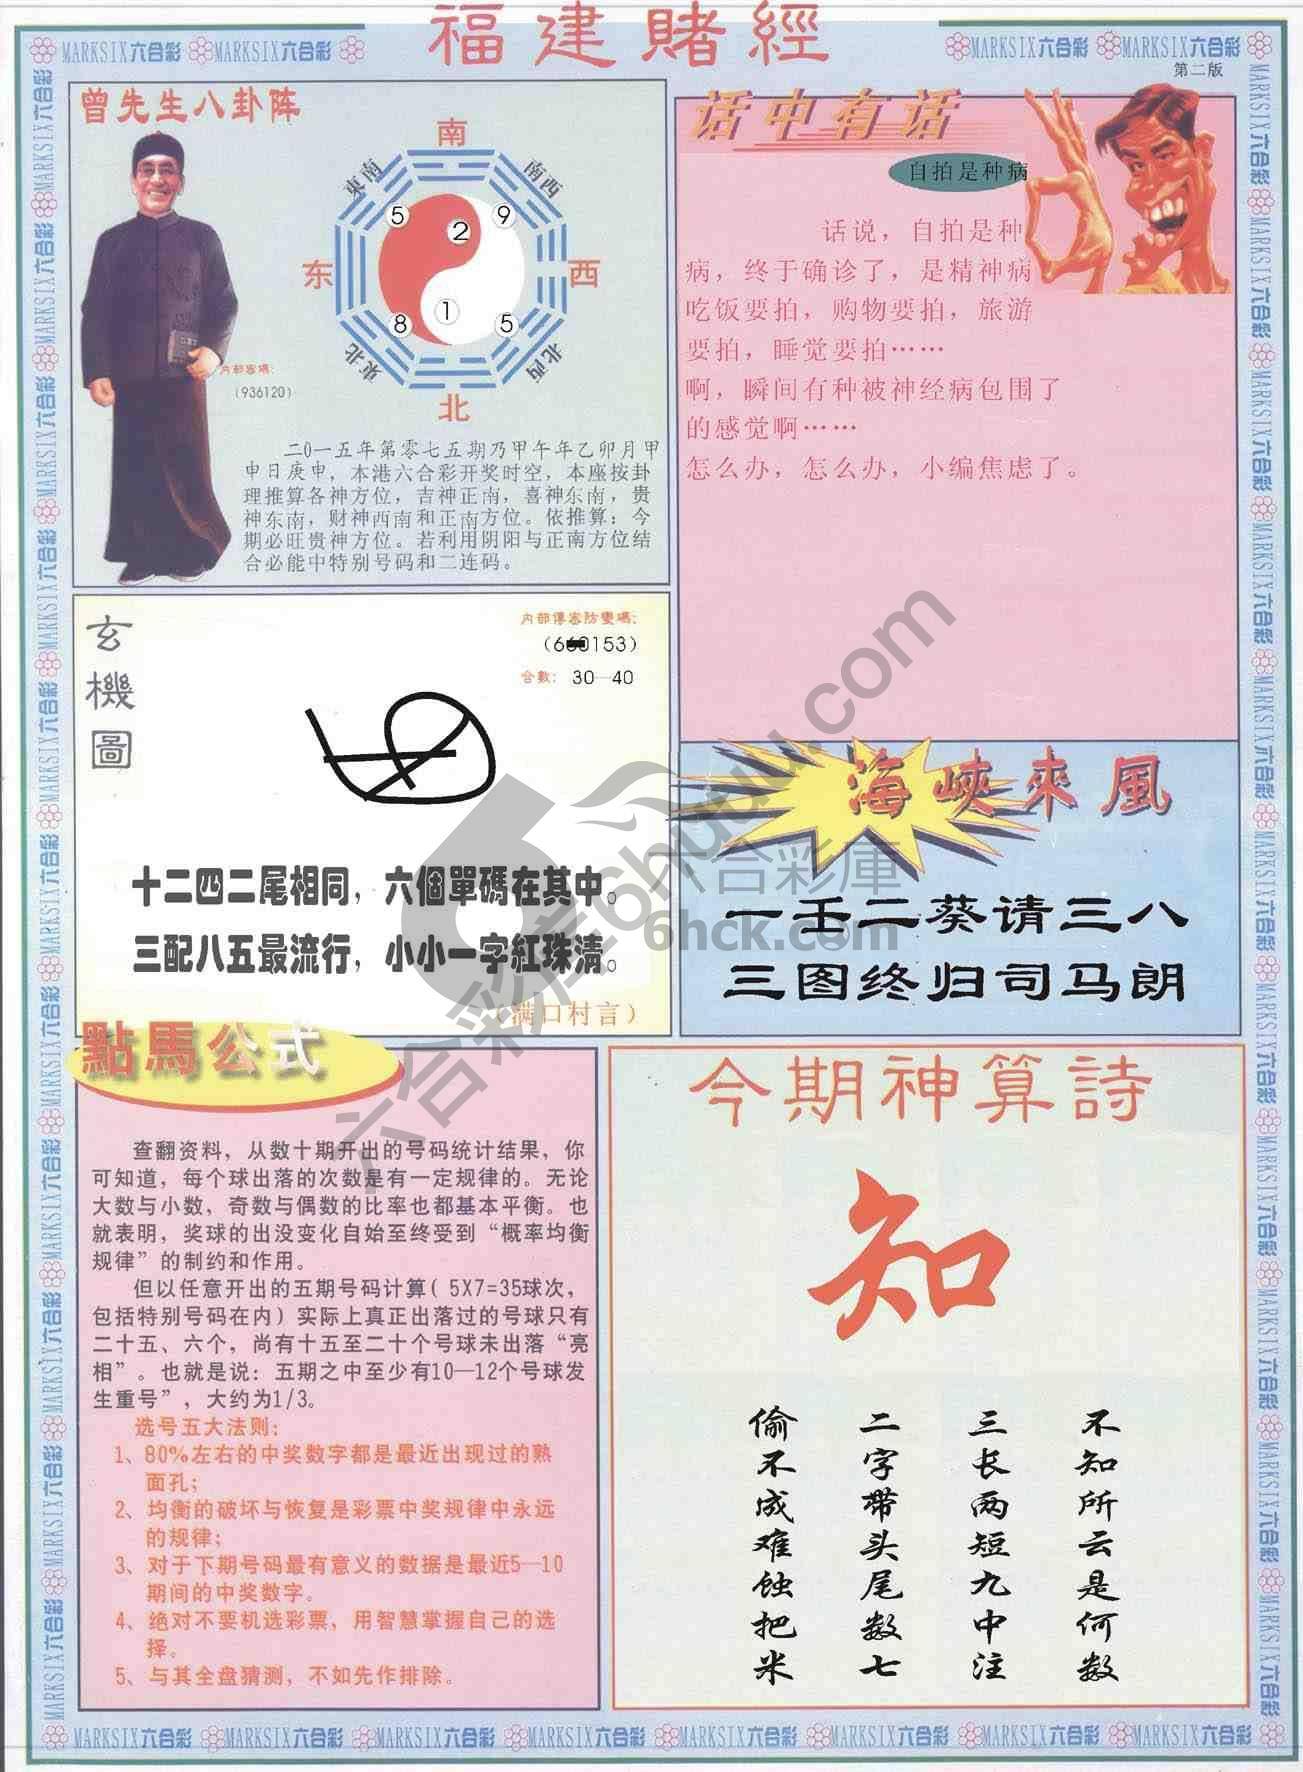 福建賭經
MARKSIX六合彩 MARKSIX六合彩
MARKSIX六合彩 MARKSIX六合彩
第二版
曾先生八卦阵
南
東南
南西
5
2
9
东
西
8
1
5
東北
北西
北
(936120)
二0一五年第零七五期乃甲午年乙卯月甲
申日庚申，本港六合彩开奖时空，本座按卦
理推算各神方位，吉神正南，喜神东南，贵
神东南，财神西南和正南方位。依推算：今
期必旺贵神方位。若利用阴阳与正南方位结
合必能中特别号码和二连码。
话中有话
自拍是种病
话说，自拍是种
病，终于确诊了，是精神病
吃饭要拍，购物要拍，旅游
要拍，睡觉要拍……
啊，瞬间有种被神经病包围了
的感觉啊……
怎么办，怎么办，小编焦虑了。
玄機圖
合數：30—40
十二四二尾相同，六個單碼在其中。
三配八五最流行，小小一字紅珠清。
（满口村言）
海峽來風
一壬二葵请三八
三图终归司马朗
六合彩庫
6hck.com
點馬公式
查翻资料，从数十期开出的号码统计结果，你
可知道，每个球出落的次数是有一定规律的。无论
大数与小数，奇数与偶数的比率也都基本平衡。也
就表明，奖球的出没变化自始至终受到“概率均衡
规律”的制约和作用。
但以任意开出的五期号码计算( 5X7=35球次，
包括特别号码在内）实际上真正出落过的号球只有
二十五、六个，尚有十五至二十个号球未出落“亮
相”。也就是说：五期之中至少有10—12个号球发
生重号”，大约为1/3。
选号五大法则：
1、80%左右的中奖数字都是最近出现过的熟
面孔；
2、均衡的破坏与恢复是彩票中奖规律中永远
的规律；
3、对于下期号码最有意义的数据是最近5—10
期间的中奖数字。
4、绝对不要机选彩票，用智慧掌握自己的选
择。
5、与其全盘猜测，不如先作排除。
今期神算詩
知
不知所云是何数
三长两短九中注
二字带头尾数七
偷不成难蚀把米
MARKSIX六合彩 MARKSIX六合彩 MARKSIX六合彩 MARKSIX六合彩 MARKSIX六合彩 MARKSIX六合彩 MARKSIX六合彩 MARKSIX六合彩